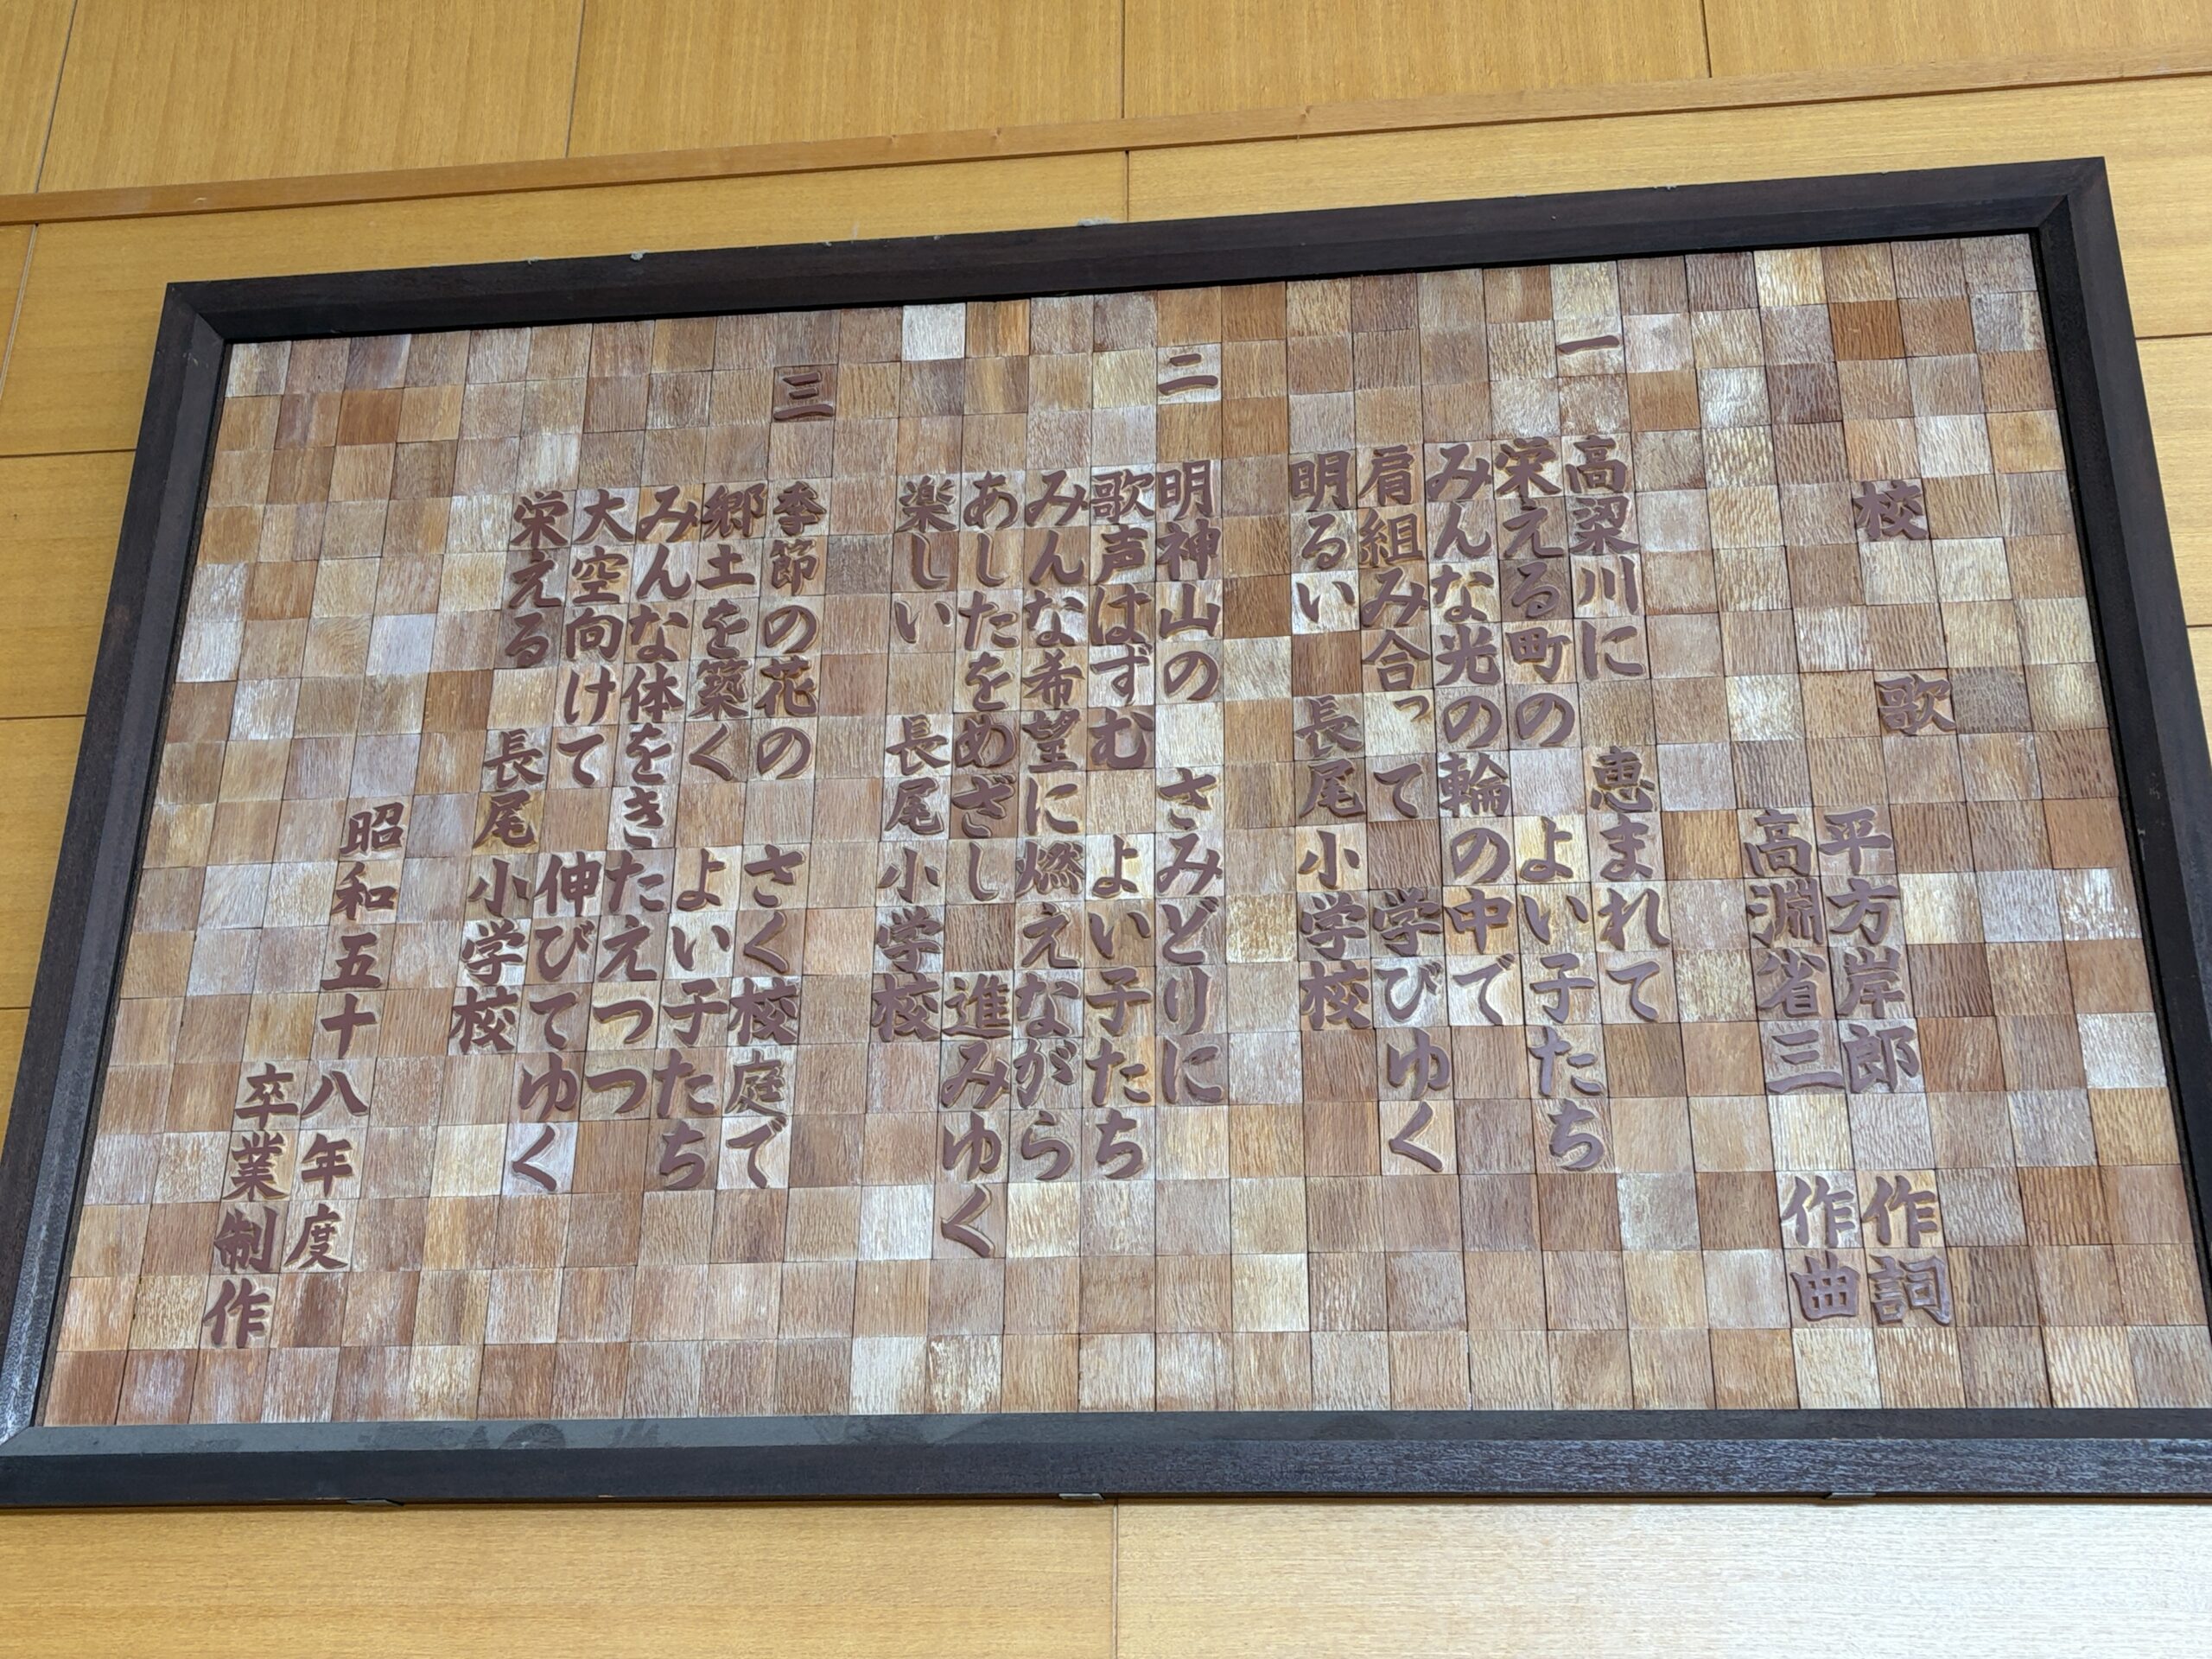 校 歌
平方岸郎 作詞
高淵省三 作曲
一
高梁川に 恵まれて
栄える町の よい子たち
みんな光の輪の中で
肩組み合って 学びゆく
明るい 長尾小学校
二
明神山の さみどりに
歌声はずむ よい子たち
みんな希望に燃えながら
あしたをめざし 進みゆく
楽しい 長尾小学校
三
季節の花の さく校庭で
郷土を築く よい子たち
みんな体をきたえつつ
大空向けて 伸びてゆく
栄える 長尾小学校
昭和五十八年度
卒業制作